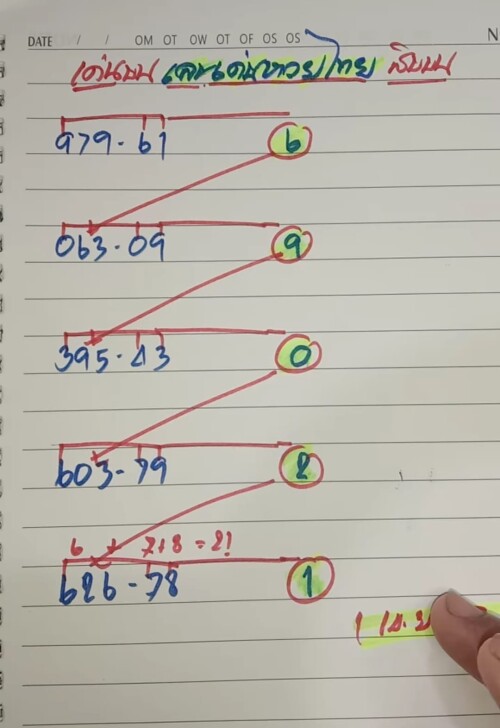 DATE / / ○M ○T ○W ○T ○F ○S ○S N
เด่นบน เลขเด่นหวยไทย สิบบน
979 - 61 6
063 - 09 9
395 - 43 0
603 - 79 2
6 + 7+8 = 21
626 - 78 1
1 เม.ย